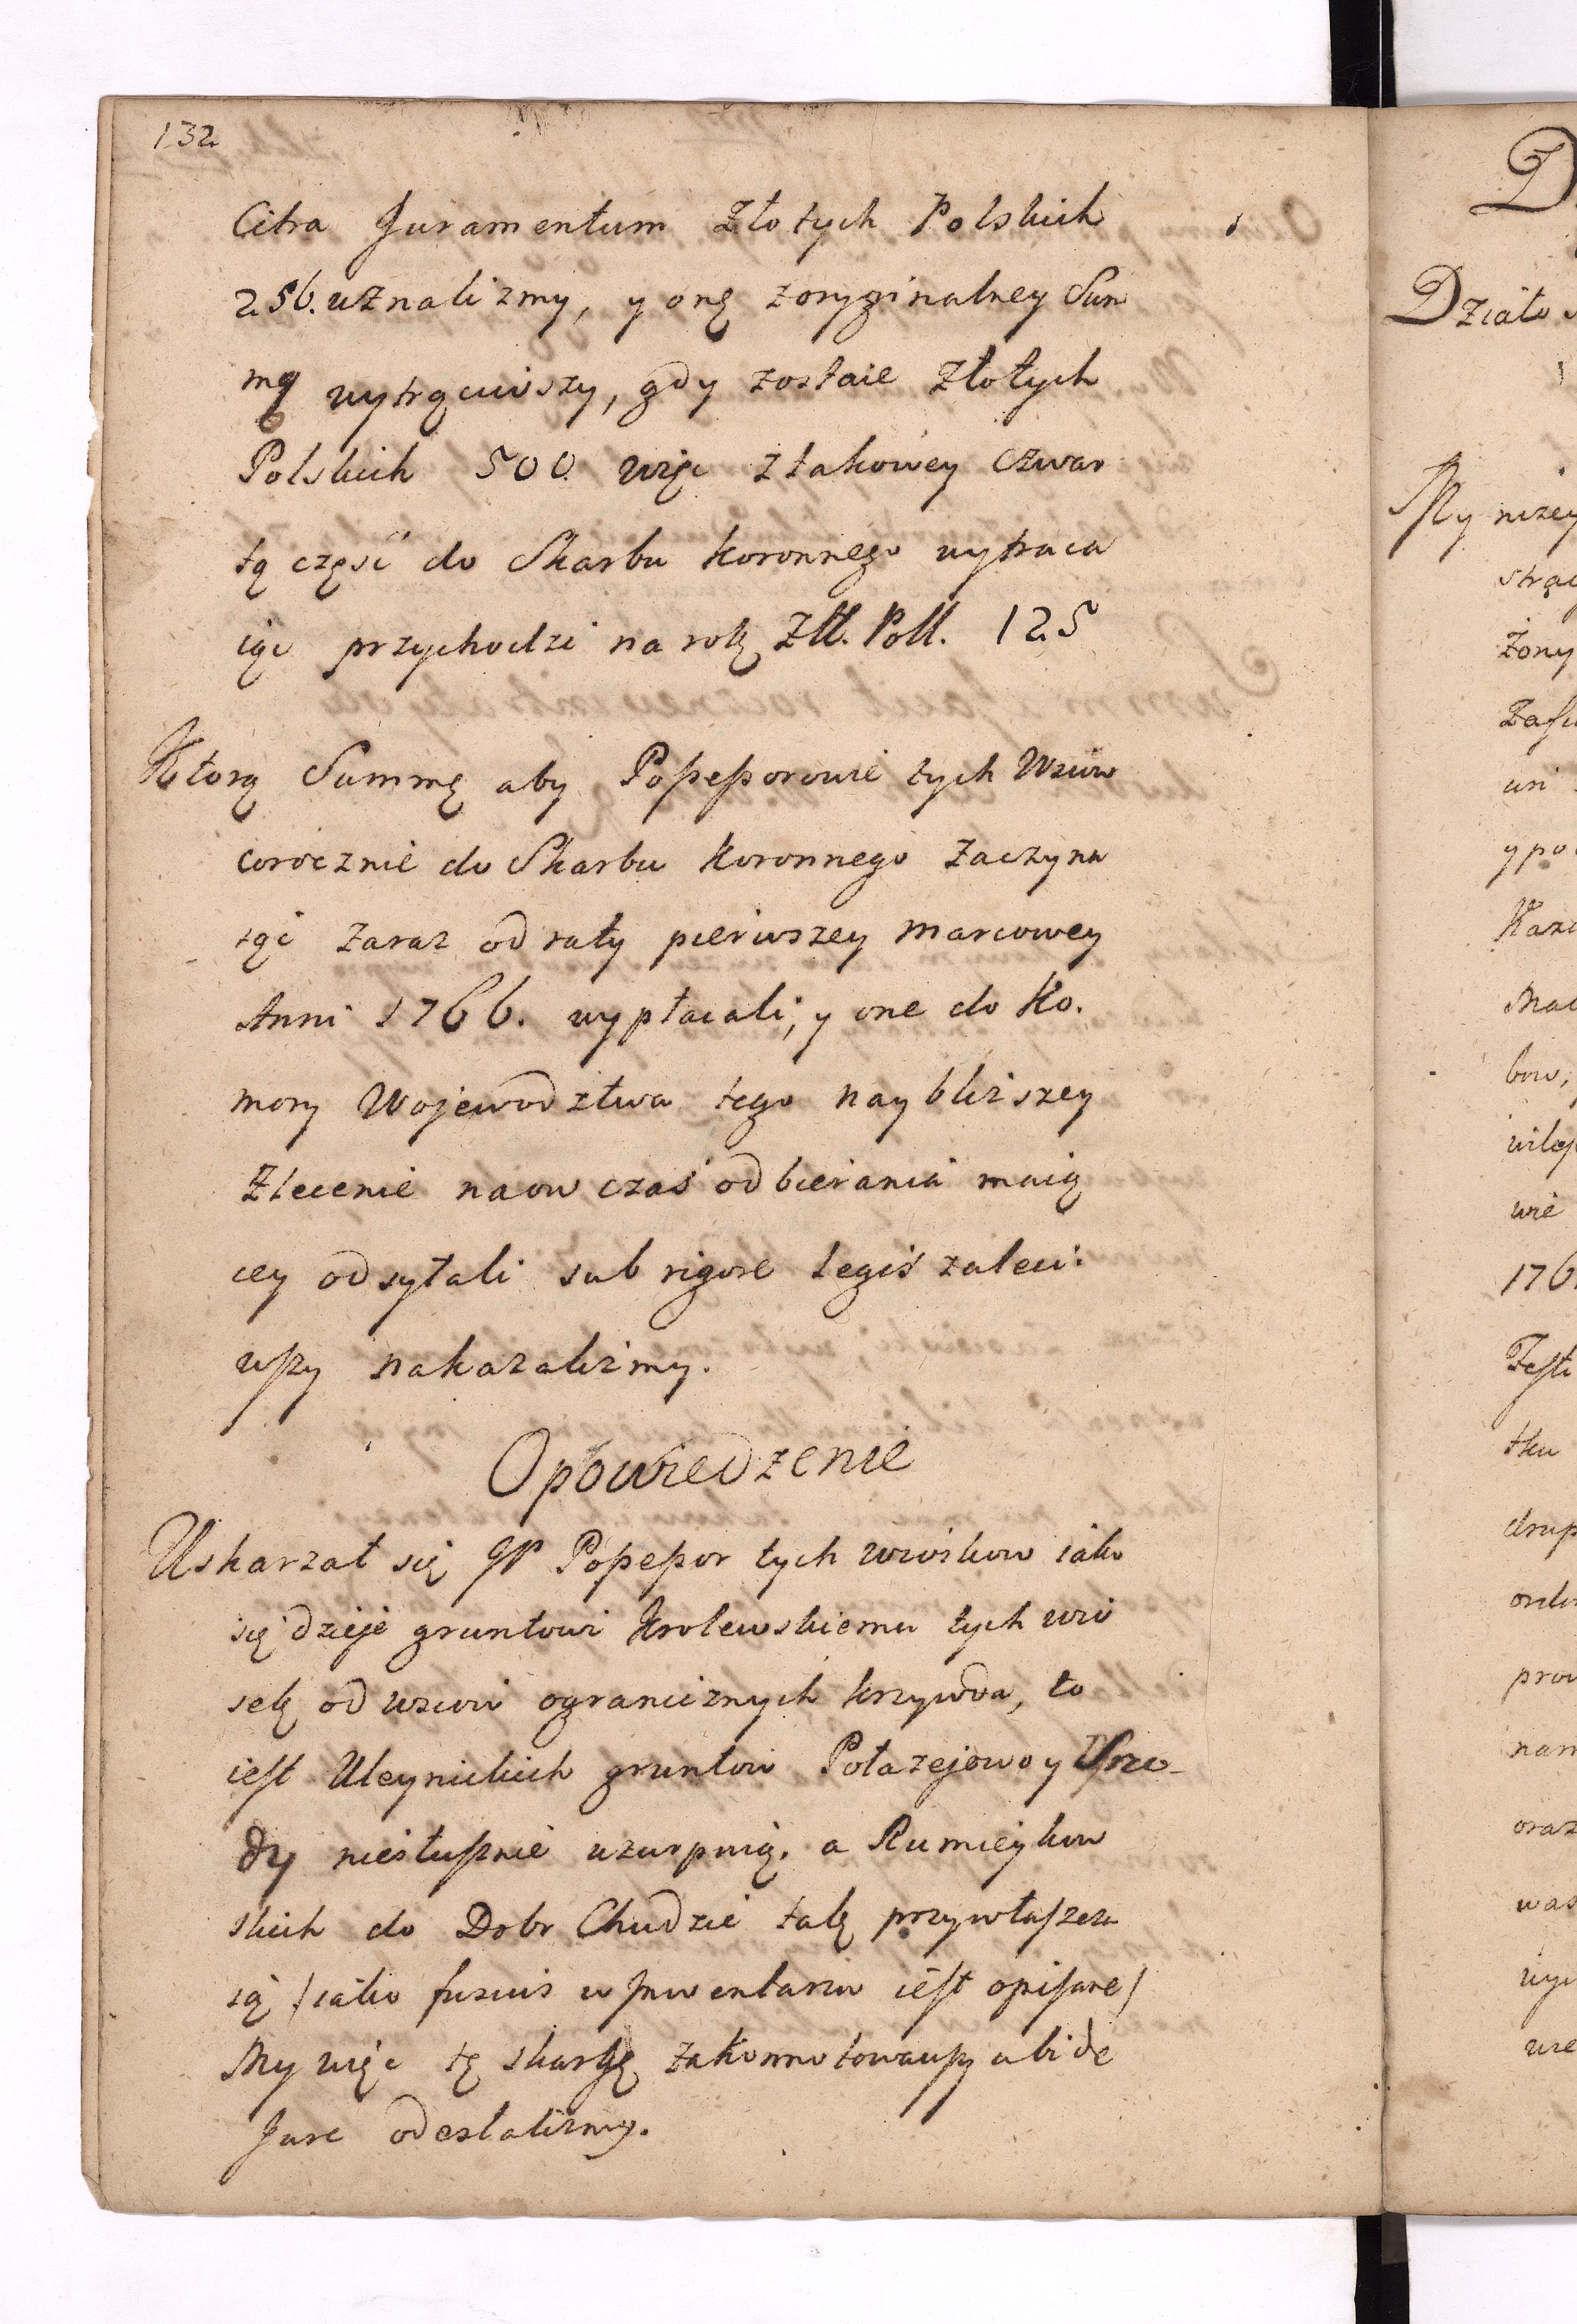 132
Citra Juramentum Złotych Polskich
256. uznalizmy, y onę zoryginalney Sum
mę wytrąciwszy, gdy zostaie Złotych
Polskich 500. więc ztakowey czwar
tą częsć do Skarbu koronnego wytraca
iąc przychodzi na rok Zll. Poll. 125
Ktorą Summę aby Poßeßorowie tych Wsiow
corocznie do Skarbu Koronnego Zaczyna
iąc Zaraz od raty pierwszey Marcowey
Anni 1766. wypłacali, y one do Ko.
mory Wojewodztwa tego naybliższey
Zlecenie naow czas odbierania maią
cey odsyłali sub rigore Legis zaleci:
wßy nakazalizmy.
Opowiedzenie
Uskarzał się JP Poßeßor tych wiosków iako
się dzieje gruntowi Krolewskiemu tych wio
sek od wsiow ogranicznych krzywda, to
iest Uleynickich gruntow Potazejowo y
dy niesłußnie uzurpuią. a Rumieykow
skich do Dobr Chudzie tak przywłaßcza
ią /iako fusius w Jnwentarzu iest opisane/
My więc tę skargę zakonnotowawßy ubi de
Jure odesłalizmy.
D
Działo
My niżey
strac
żony
uni
ypo
Kazi
Mac
bow,
wie
176
tku
prow
nam
oraz
was
wie